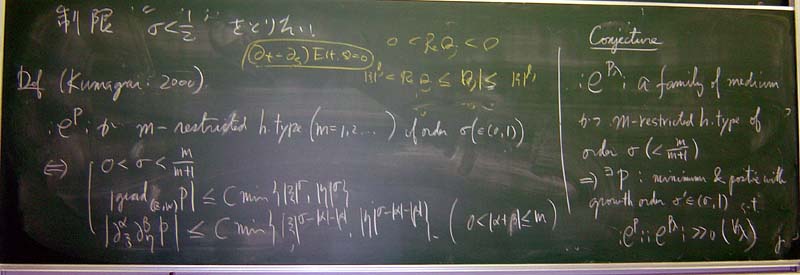 制限 “σ<1/2” をとりたい!
(∂t-∂s)E(t,s)=0
0<Re Qj<0
Def (Kumagai: 2000)
:e^P: が m-restricted h.type (m=1,2…) of order σ(∈(0,1))
⇔ 0<σ<m/(m+1)
|grad P| ≤ C min{|ξ|^σ, |η|^σ}
|∂ξ^α ∂η^β P| ≤ C min{|ξ|^{σ-|α|-|β|}, |η|^{σ-|α|-|β|}}. (0<|α+β|≤m)
Conjecture
:e^{Pλ}: a family of medium
かつ m-restricted h.type of
order σ (<m/(m+1))
⇒ ∃P: & with
growth order σ'∈(σ,1) s.t.
:e^P::e^{Pλ}: ≫0 (∀λ)